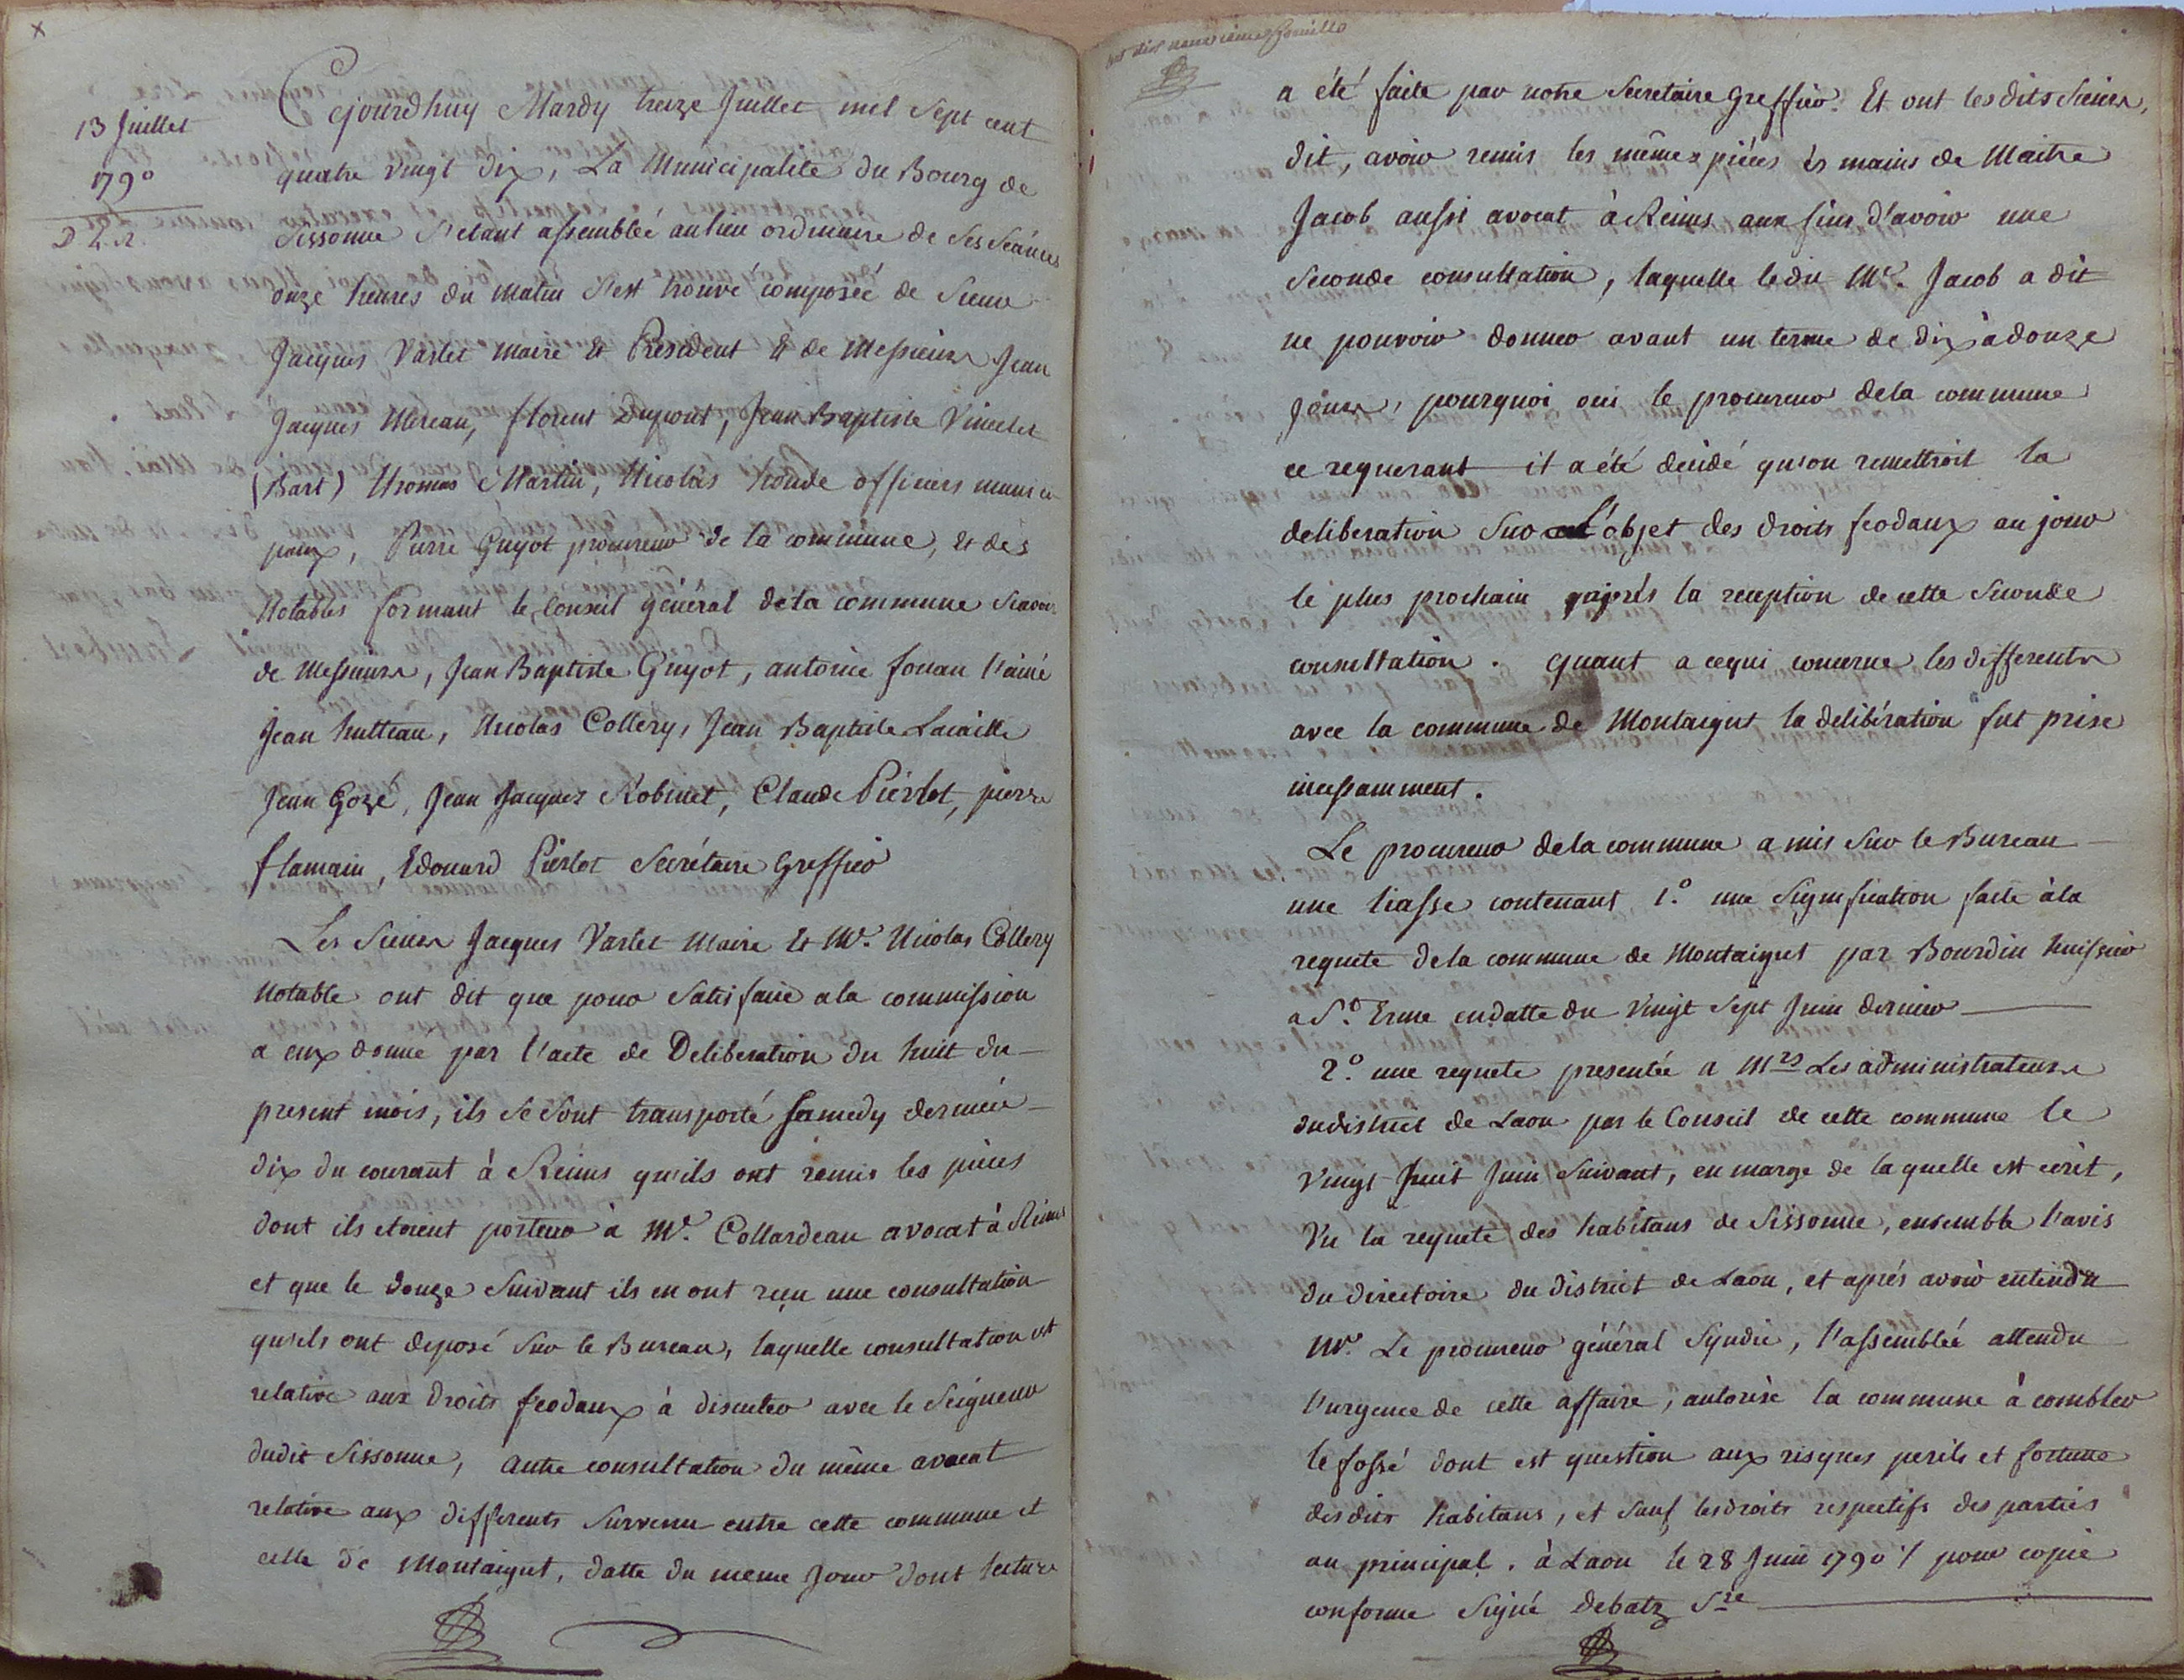 13 Juillet
1790
Cejourdhuy Mardy treize Juillet mil Sept cent
quatre vingt dix, La Municipalité du Bourg de
Sissonne S'etant assemblée au lieu ordinaire de Ses Séances
onze heures du matin S'est trouvé composée de Sieur
Jacques Varlet maire et President et de Messieurs Jean
Jacques Mereau, florent Dupont, Jean Baptiste Vincelet
(Bart) Thomas Martin, Nicolas honde officiers munici
paux, Pierre Guyot procureur de la commune, et des
Notables formant le Conseil général dela commune Scavoir
de Messieurs, Jean Baptiste Guyot, antoine fouan l'ainé
Jean hutteau, Nicolas Collery, Jean Baptiste Lacaille
Jean Gozé, Jean Jacques Robinet, Claude Piérlot, pierre
flamain, Edouard Piérlot Secrétaire Greffier
Les Sieurs Jacques Varlet Maire et Mr. Nicolas Collery
Notable ont dit que pour Satisfaire ala commission
a eux donné par l'acte de Deliberation du huit du
present mois, ils Se Sont transporté Samedy dernier
dix du courant à Reims qu'ils ont remis les pieces
dont ils etoient porteur à Me. Collardeau avocat à Reims
et que le douze Suivant ils en ont reçu une consultation
qu'ils ont deposé Sur le Bureau, laquelle consultation est
relative aux droits feodaux à discuter avec le Seigneur
dudit Sissonne, autre consultation du même avocat
relative aux differents Survenu entre cette commune et
celle de Montaigut, datte du meme Jour dont lecture
a été faite par notre Secretaire Greffier. Et ont lesdits Sieurs,
dit, avoir remis les mêmes piéces ès mains de Maitre
Jacob aussi avocat à Reims aux fins d'avoir une
Seconde consultation, laquelle ledit Me. Jacob a dit
ne pouvoir donner avant un terme de dix à douze
Jours, pourquoi oui le procureur dela commune
ce requerant il a été decidé qu'on remettroit la
deliberation Sur l'objet des droits feodaux au jour
le plus prochain après la reception de cette Seconde
consultation. quant a cequi concerne les differents
avec la commune de Montaigut la delibération fut prise
incessamment.
Le procureur dela commune a mis Sur le Bureau
une liasse contenant 1.o une Signification faite àla
requete dela commune de Montaigut par Bourdin huissier
a St. Erme en datte du Vingt Sept Juin dernier
2.o une requete presentée a Mrs Les administrateurs
du district de Laon par le Conseil de cette commune le
Vingt huit Juin Suivant, en marge de laquelle est ecrit,
Vu la requete des habitans de Sissonne, ensemble l'avis
du directoire du district de Laon, et après avoir entendu
Mr. Le procureur général Syndic, l'assemblée attendu
l'urgence de cette affaire, autorise la commune à combler
le fossé dont est question aux risques perils et fortune
desdits habitans, et Sauf lesdroits respectifs des parties
au principal. à Laon le 28 Juin 1790 ./. pour copie
conforme Signé Debatz Sre